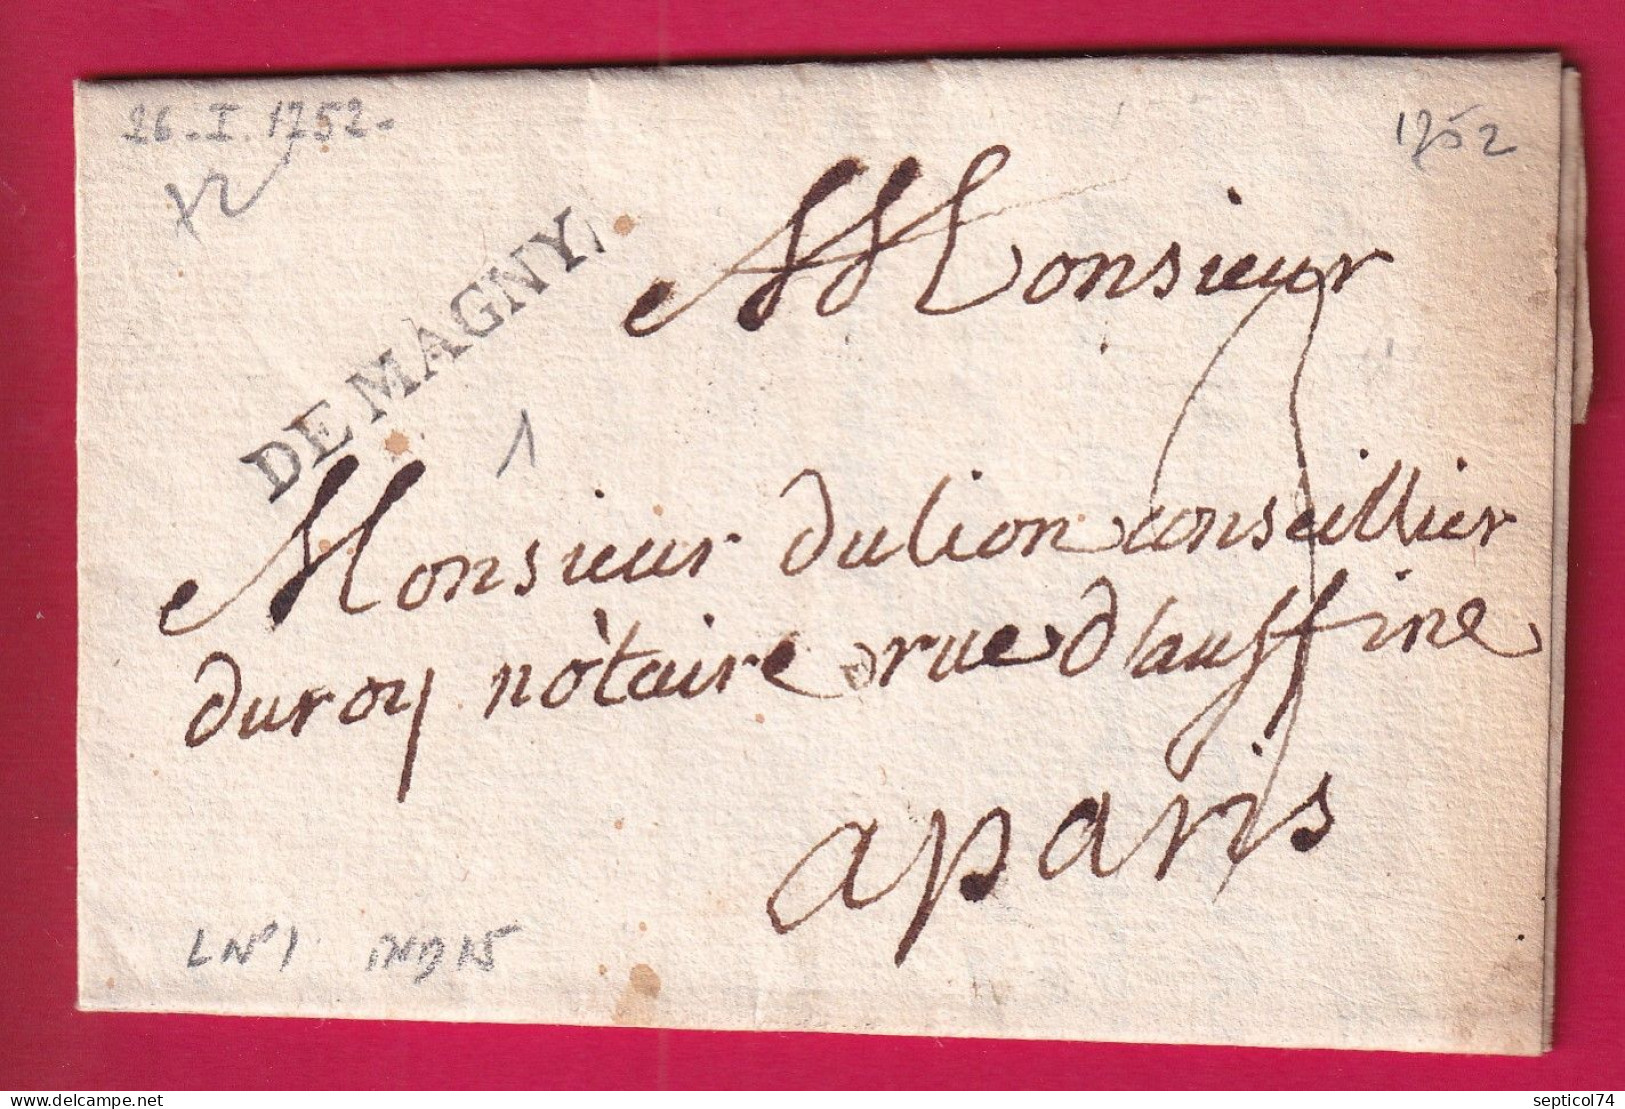 26-I.1752-
1752
x2
DE MAGNY
Monsieur
1
Monsieur dulion conseillier
duroy nòtaire rue d'auffine
a paris
L N°1 IND 15
delcampe.net
septicol74